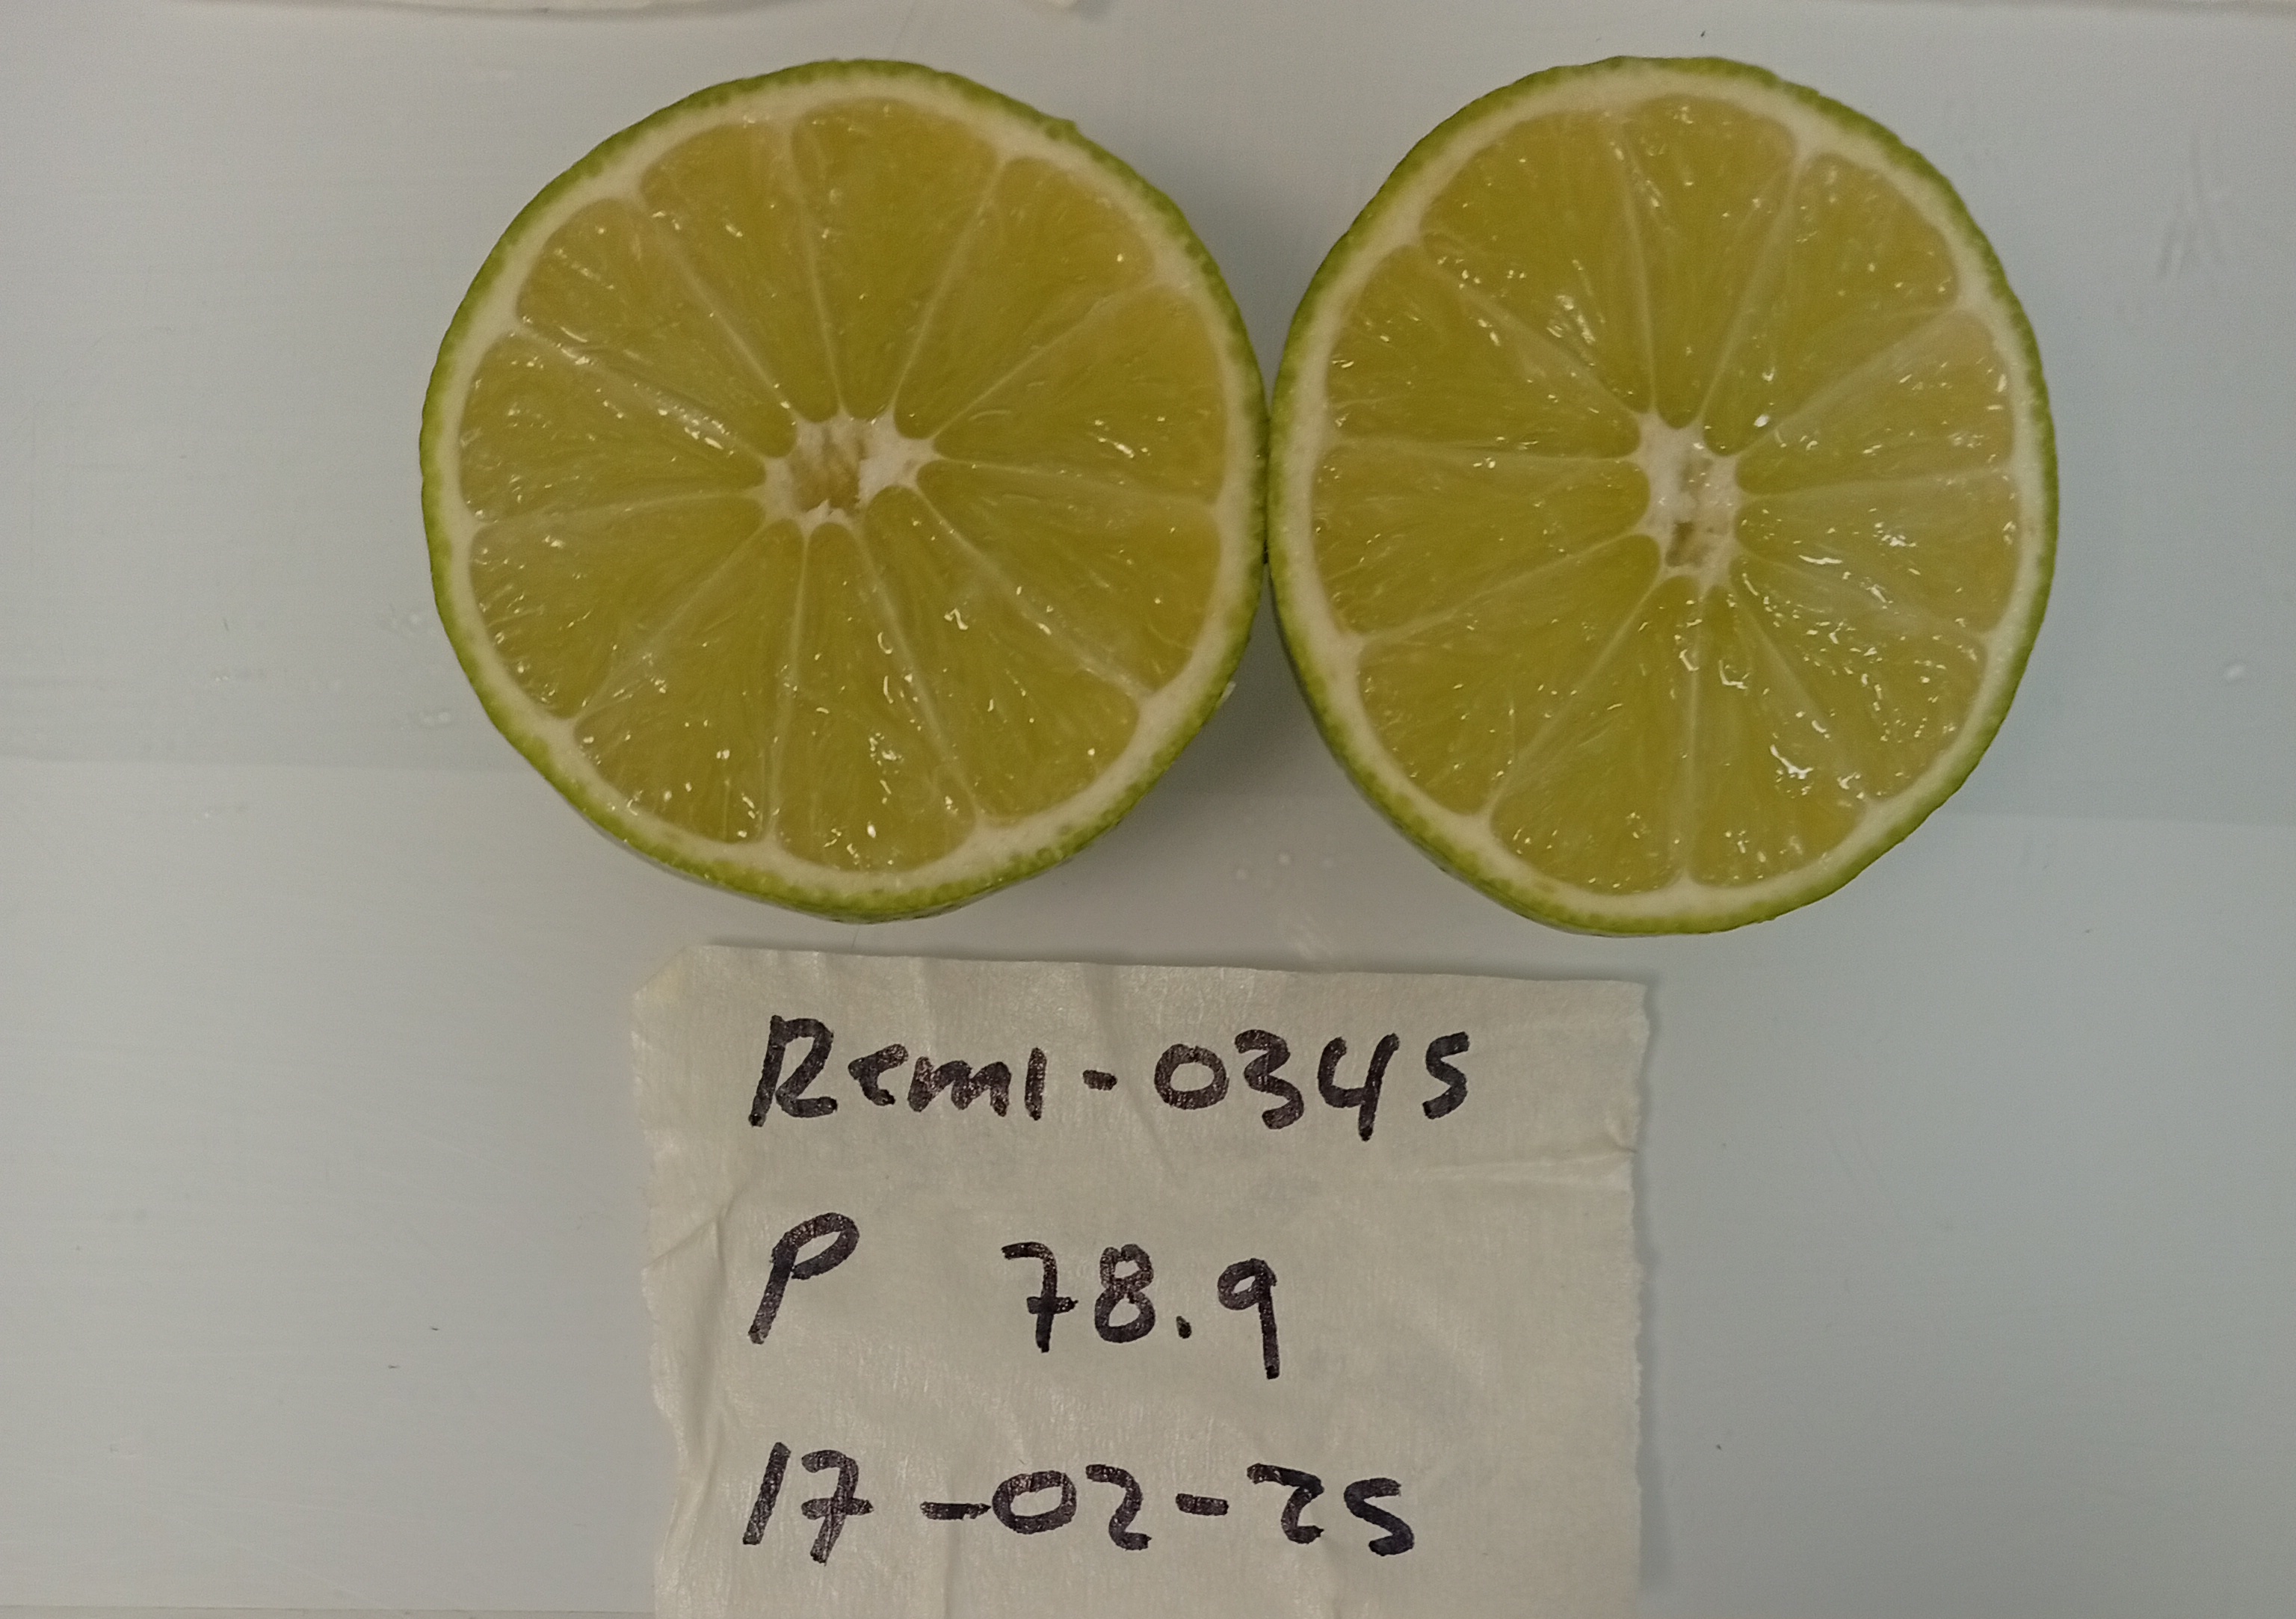 Reml-0345
P 78.9
17-02-25